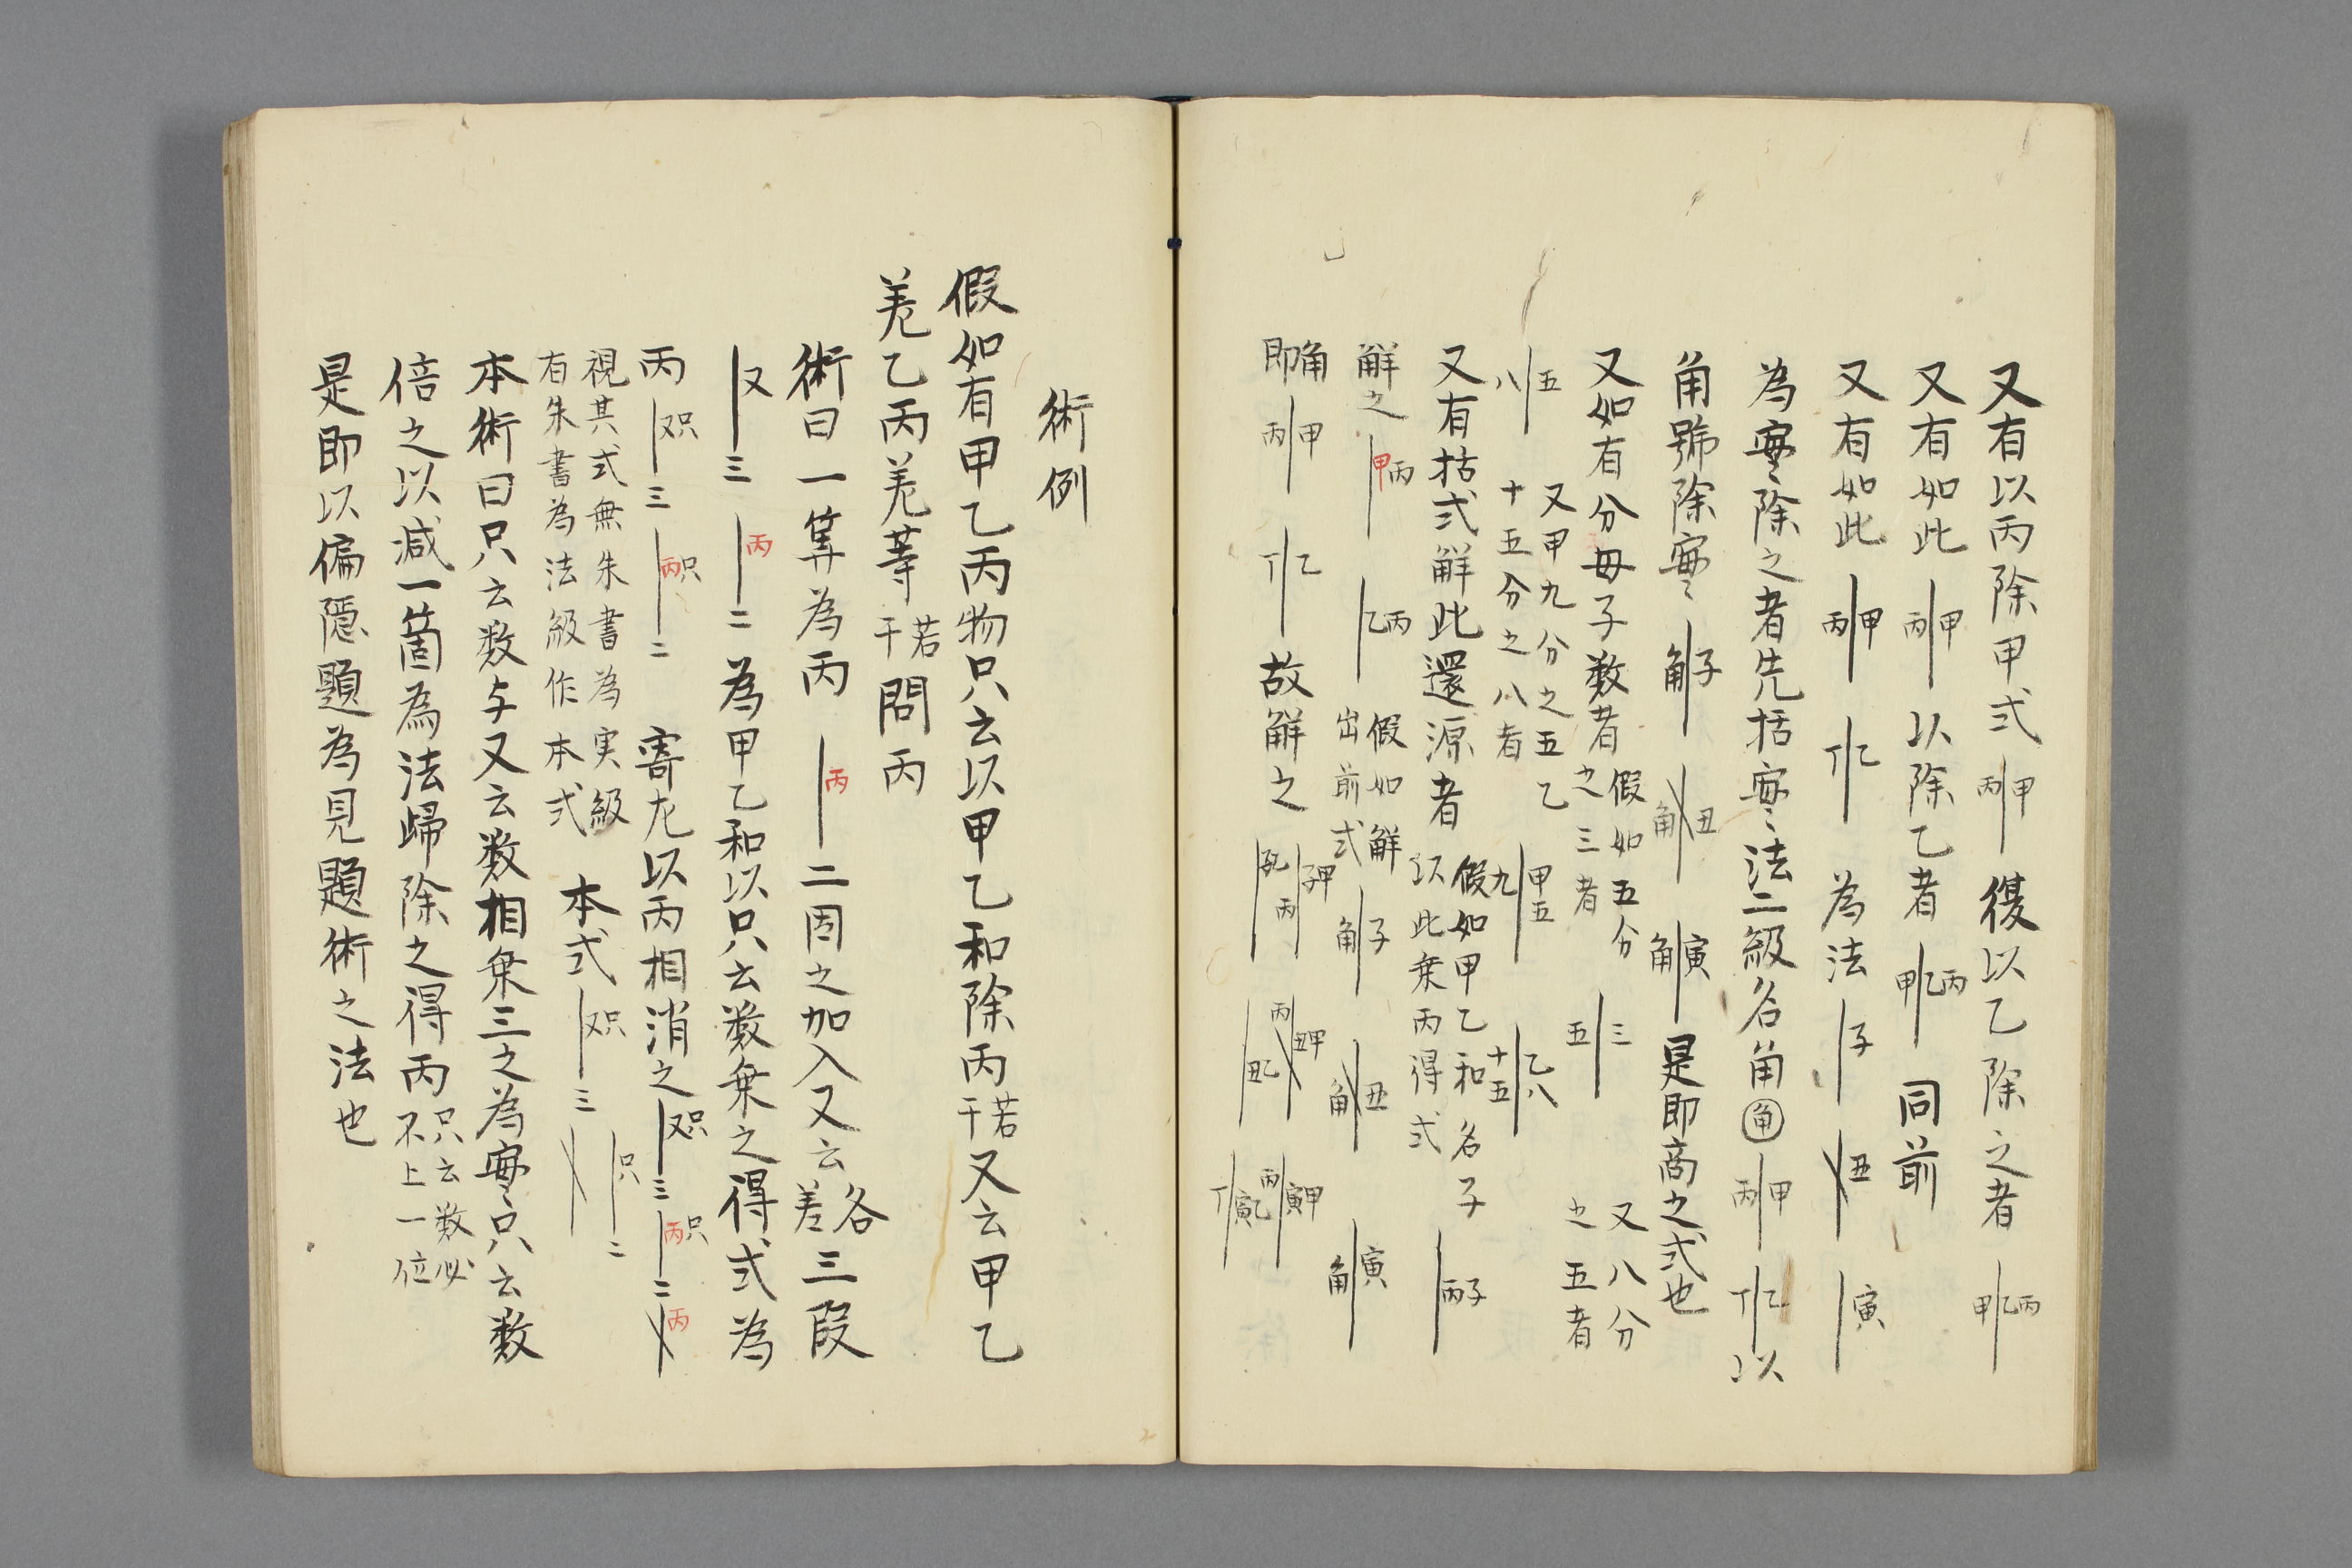 又有以丙除甲式 丙|甲 復以乙除之者 甲|乙丙
又有如此 丙|甲 以除乙者 甲|乙丙 同前
又有如此 丙|甲 丁|乙 為法 |子 |丑 |寅
為実除之者先括実法二級各角㊀角 丙|甲 丁|乙 以
角號除実 角|子 角|丑 角|寅 是即商之式也
又如有分母子数者 假如五分之三者 五|三 又八分之五者
八|五 又甲九分之五乙十五分之八者 九|甲五 十五|乙八
又有括式解此還源者 假如甲乙和名子以此乗丙得式 |丙子
解之 |甲丙 |乙丙 假如解出前式 角|子 角|丑 角|寅
角即 丙|甲 丁|乙 故解之 |子乙 丙|子甲 |丑乙 丙|丑甲 丁|寅乙 丙|寅甲
術例
假如有甲乙丙物只云以甲乙和除丙若干又云甲乙
差乙丙差等若干問丙
術曰一算為丙 |丙 二因之加入又云各差三段
|又三 |丙二 為甲乙和以只云数乗之得式為
丙 |又只三 |丙只二 寄左以丙相消之 |又只三 |丙只二 |丙
視其式無朱書為実級
有朱書為法級作本式 本式 |又只三 |只二
本術曰只云数与又云数相乗三之為実只云数
倍之以減一箇為法歸除之得丙 只云数必不上一位
是即以偏隠題為見題術之法也